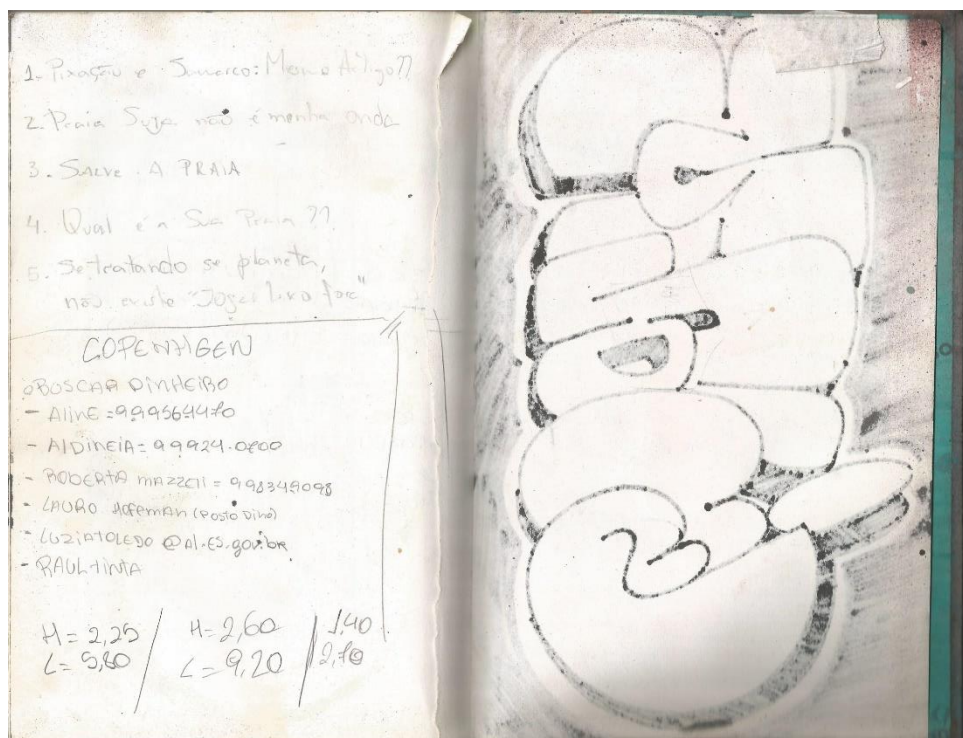 1. Pixação e Samarco: Mesmo Artigo??
2. Praia Suja não é minha onda
3. SALVE A PRAIA
4. Qual é a Sua Praia ??
5. Se tratando se planeta,
não existe "Jogar lixo fora"
COPENHAGEN
BUSCAR DINHEIRO
- ALINE =
- AlDINEIA= 99924.0700
- ROBERTA MAZZEII = 998349098
- LAURO HOFFMAN (Posto Dino)
- LUZIATOLEDO @Al.ES.gov.br
- RAUL tINTA
H = 2,25 H= 2,60 1,40
L= 5,80 L= 9,20 2,70